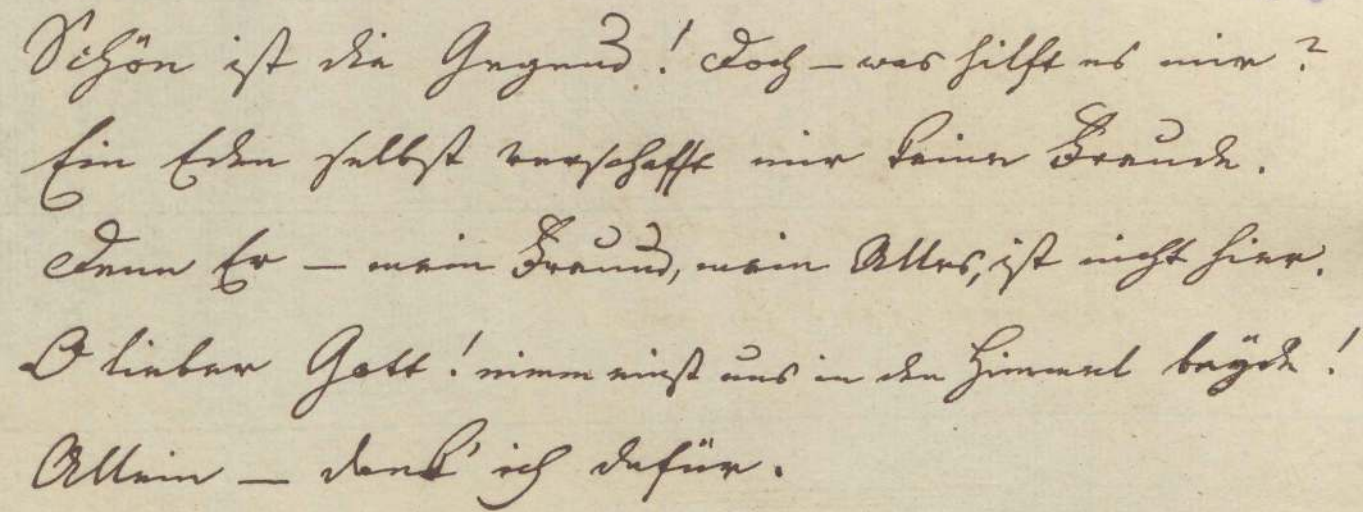 Schön ist die Gegend! Doch – was hilft es mir?
Ein Eden selbst verschafft mir keine Freude.
Denn Er – mein Freund, mein Alles, ist nicht hier.
O lieber Gott! nimm einst uns in den Himmel beÿde!
Allein – dank' ich dafür.